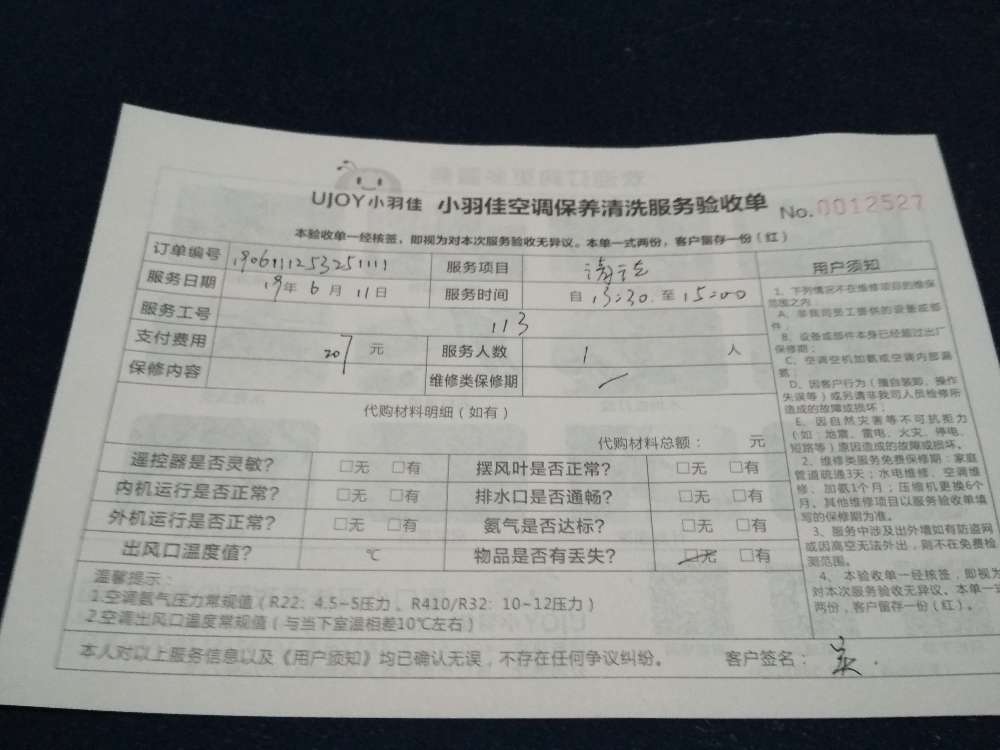 UJOY小羽佳 小羽佳空调保养清洗服务验收单 No.0012527
本验收单一经核签，即视为对本次服务验收无异议。本单一式两份，客户留存一份（红）
订单编号 190611125325 1111 服务项目 清洗
服务日期 19年 6月 11日 服务时间 自 13:30 至 15:00
服务工号 113
支付费用 207 元 服务人数 1 人
保修内容 维修类保修期
代购材料明细（如有）
代购材料总额： 元
遥控器是否灵敏？ □无 □有 摆风叶是否正常？ □无 □有
内机运行是否正常？ □无 □有 排水口是否通畅？ □无 □有
外机运行是否正常？ □无 □有 氨气是否达标？ □无 □有
出风口温度值？ ℃ 物品是否有丢失？ □无 □有
温馨提示：
1.空调氨气压力常规值（R22：4.5~5压力、R410/R32：10~12压力）
2.空调出风口温度常规值（与当下室温相差10℃左右）
本人对以上服务信息以及《用户须知》均已确认无误，不存在任何争议纠纷。 客户签名：
用户须知
1、下列情况不在维修项目的维保
范围之内：
A、非我司员工提供的设备或部
件；
B、设备或部件本身已经超过出厂
保修期；
C、空调空机加氨或空调内部漏
氨；
D、因客户行为（擅自装卸、操作
失误等）或另请非我司人员检修所
造成的故障或损坏；
E、因自然灾害等不可抗拒力
（如：地震、雷电、火灾、停电、
短路等）原因造成的故障或损坏。
2、维修类服务免费保修期：家庭
管道疏通3天；水电维修、空调维
修、加氨1个月；压缩机更换6个
月。其他维修项目以服务验收单填
写的保修期为准。
3、服务中涉及出外墙如有防盗网
或因高空无法外出，则不在免费检
测范围。
4、本验收单一经核签，即视为
对本次服务验收无异议。本单一式
两份，客户留存一份（红）。